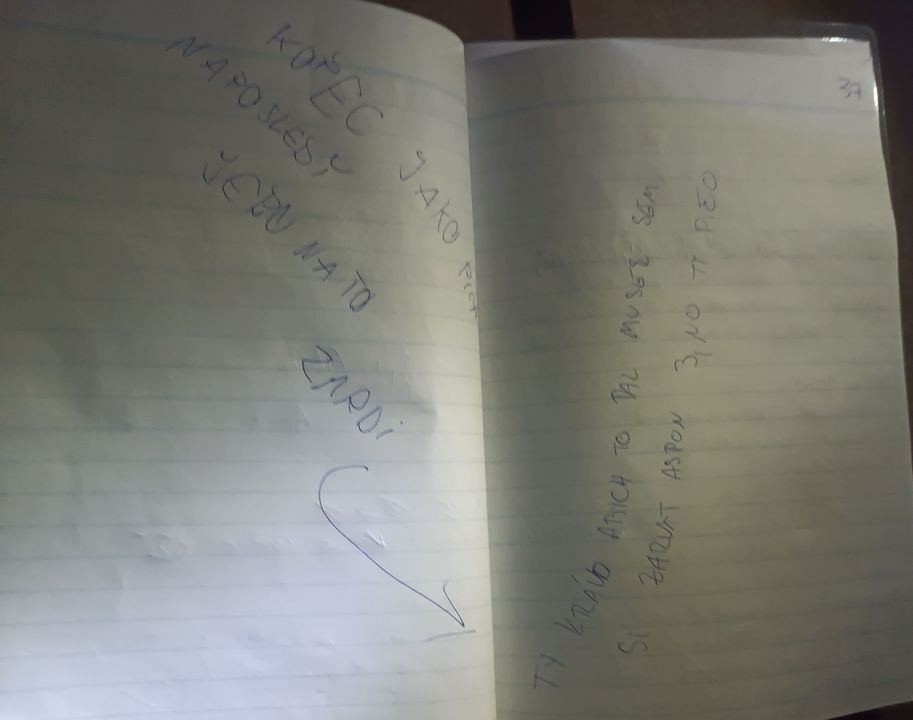 KOPEC JAKO
NAPOSLEDY
JEDU NA TO
ZNRDI
37
TY KRÁVO ABICH TO DAL MUSEL SEM
SI ZARVAT ASPON 3, NO TY PIČO